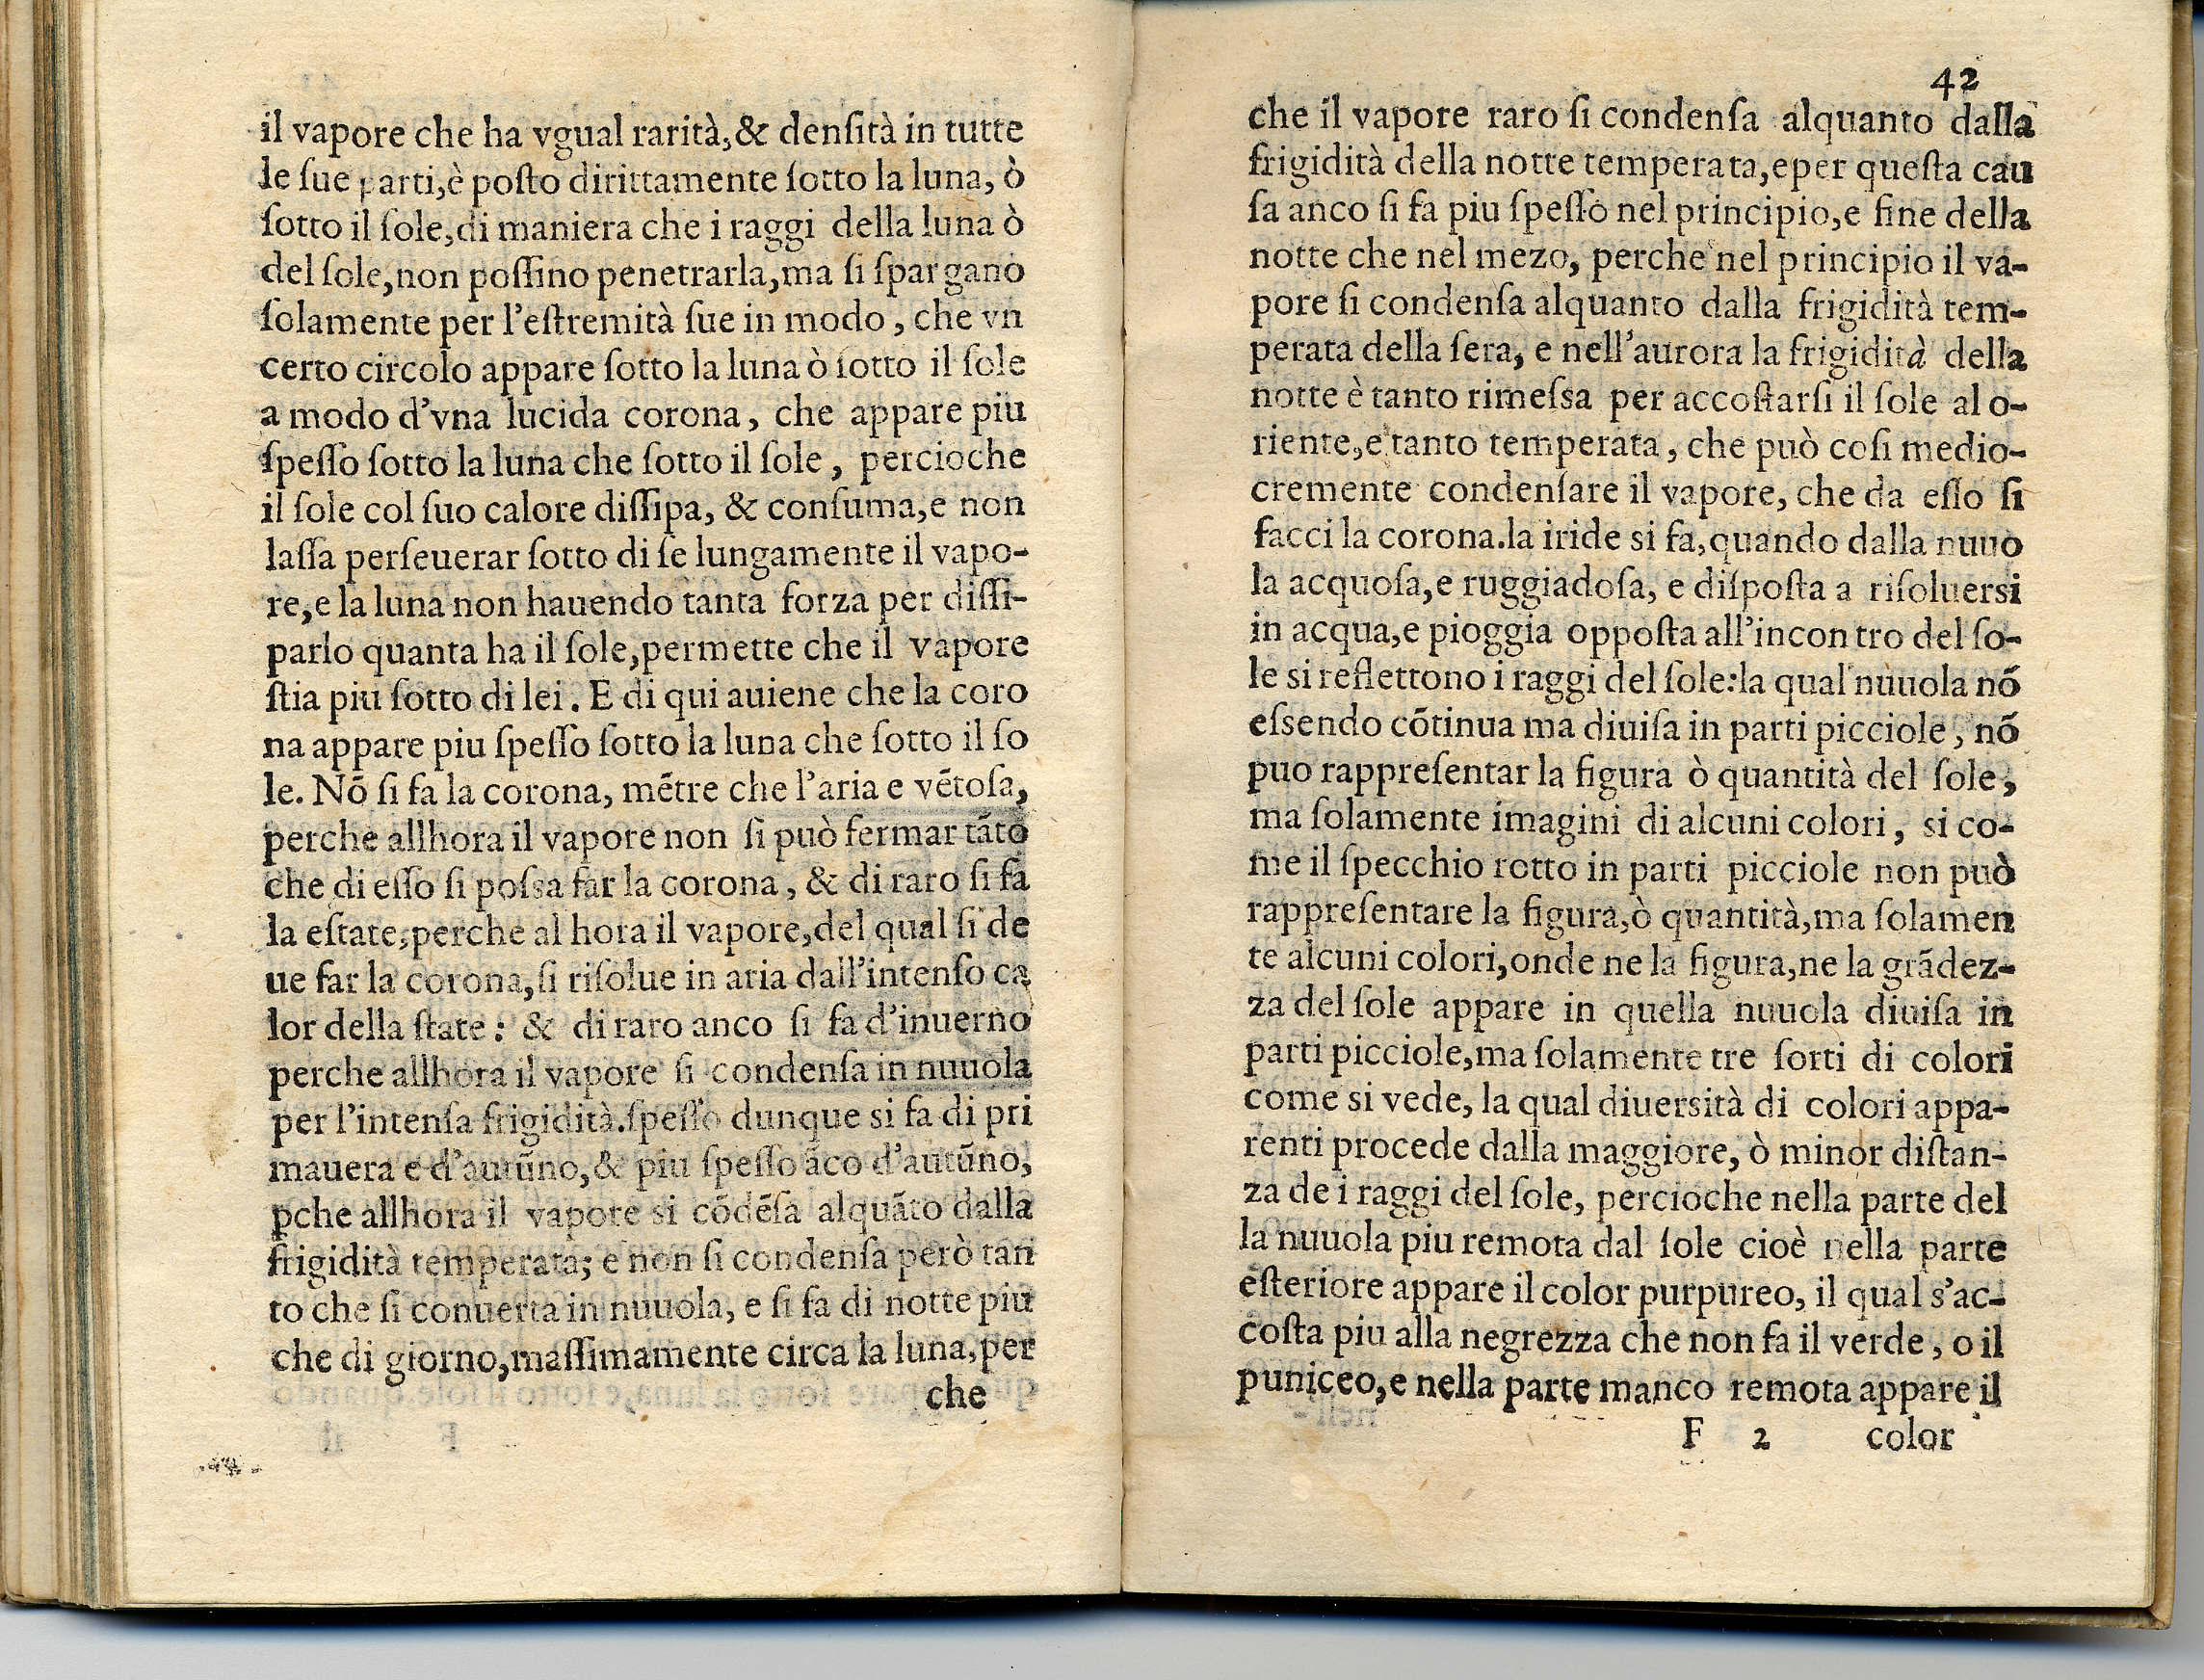 il vapore che ha vgual rarità,& denſità in tutte
le ſue parti,è poſto dirittamente ſotto la luna, ò
ſotto il ſole,di maniera che i raggi della luna ò
del ſole,non poſſino penetrarla,ma ſi ſpargano
ſolamente per l'eſtremità ſue in modo, che vn
certo circolo appare ſotto la luna ò ſotto il ſole
a modo d'vna lucida corona, che appare piu
ſpeſſo ſotto la luna che ſotto il ſole, percioche
il ſole col ſuo calore diſſipa, & conſuma,e non
laſſa perſeuerar ſotto di ſe lungamente il vapo-
re,e la luna non hauendo tanta forza per diſſi-
parlo quanta ha il ſole,permette che il vapore
ſtia piu ſotto di lei. E di qui auiene che la coro
na appare piu ſpeſſo ſotto la luna che ſotto il ſo
le. Nõ ſi fa la corona, mẽtre che l'aria e vẽtoſa,
perche allhora il vapore non ſi può fermar tãto
che di eſſo ſi poſsa far la corona, & di raro ſi fa
la eſtate,perche al hora il vapore,del qual ſi de
ue far la corona,ſi riſolue in aria dall'intenſo ca
lor della ſtate: & di raro anco ſi fa d'inuerno
perche allhora il vapore ſi condenſa in nuuola
per l'intenſa frigidità.ſpeſſo dunque si fa di pri
mauera e d'autũno,& piu ſpeſſo ãco d'autũno,
ꝑche allhora il vapore si cõdẽſa alquãto dalla
frigidità temperata; e non ſi condenſa però tan
to che ſi conuerta in nuuola, e ſi fa di notte piu
che di giorno,maſſimamente circa la luna,per
che
42
che il vapore raro ſi condenſa alquanto dalla
frigidità della notte temperata,eper queſta cau
ſa anco ſi fa piu ſpeſſo nel principio,e fine della
notte che nel mezo, perche nel principio il va-
pore ſi condenſa alquanto dalla frigidità tem-
perata della ſera, e nell'aurora la frigidità della
notte è tanto rimeſsa per accoſtarſi il ſole al o-
riente,e tanto temperata, che può coſi medio-
cremente condenſare il vapore, che da eſſo ſi
facci la corona.la iride si fa,quando dalla nuuo
la acquoſa,e ruggiadoſa, e diſpoſta a riſoluersi
in acqua,e pioggia oppoſta all'incon tro del ſo-
le si reflettono i raggi del ſole:la qual nuuola nõ
eſsendo cõtinua ma diuiſa in parti picciole, nõ
puo rappreſentar la figura ò quantità del ſole,
ma ſolamente imagini di alcuni colori, si co-
me il ſpecchio rotto in parti picciole non può
rappreſentare la figura,ò quantità,ma ſolamen
te alcuni colori,onde ne la figura,ne la grãdez-
za del ſole appare in quella nuuola diuiſa in
parti picciole,ma ſolamente tre ſorti di colori
come si vede, la qual diuersità di colori appa-
renti procede dalla maggiore, ò minor diſtan-
za de i raggi del ſole, percioche nella parte del
la nuuola piu remota dal ſole cioè nella parte
eſteriore appare il color purpureo, il qual s'ac-
coſta piu alla negrezza che non fa il verde, o il
puniceo,e nella parte manco remota appare il
F 2 color